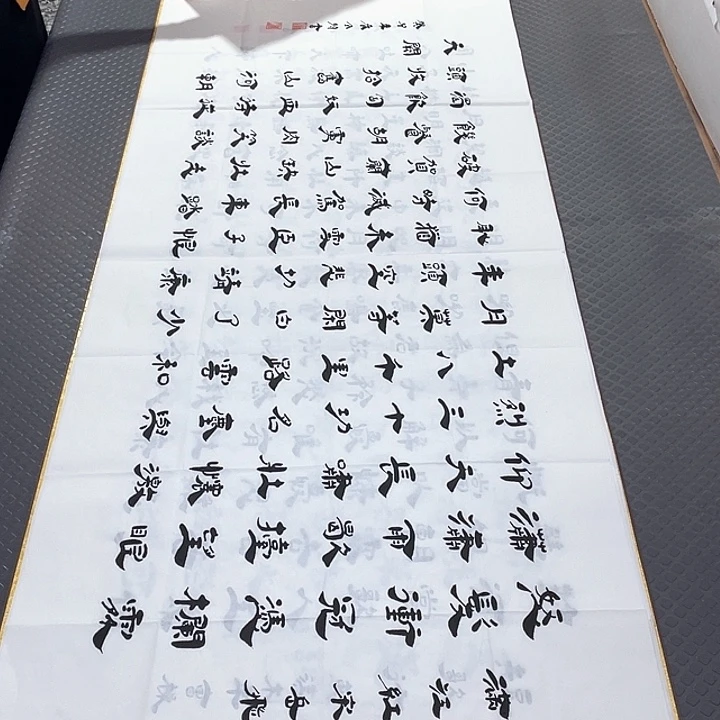 滿江紅 宋 岳飛
怒髮衝冠憑欄處
瀟瀟雨歇擡望眼
仰天長嘯壯懷激
烈三十功名塵與
土八千里路雲和
月莫等閒白了少
年頭空悲切靖康
恥猶未雪臣子恨
何時滅駕長車踏
破賀蘭山缺壯志
饑餐胡虜肉笑談
渴飲匈奴血待從
頭收拾舊山河朝
天闕